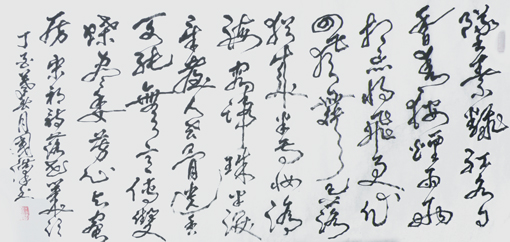 墜素翻红各自
傷青楼煙雨忍
相忘将飛更作
回風舞已落
猶成半面妝滄
海客歸珠迸淚
章臺人去骨遺香
可能無意傳雙
蝶盡委芳心與蜜
房宋祁詩落花
丁亥 月 書